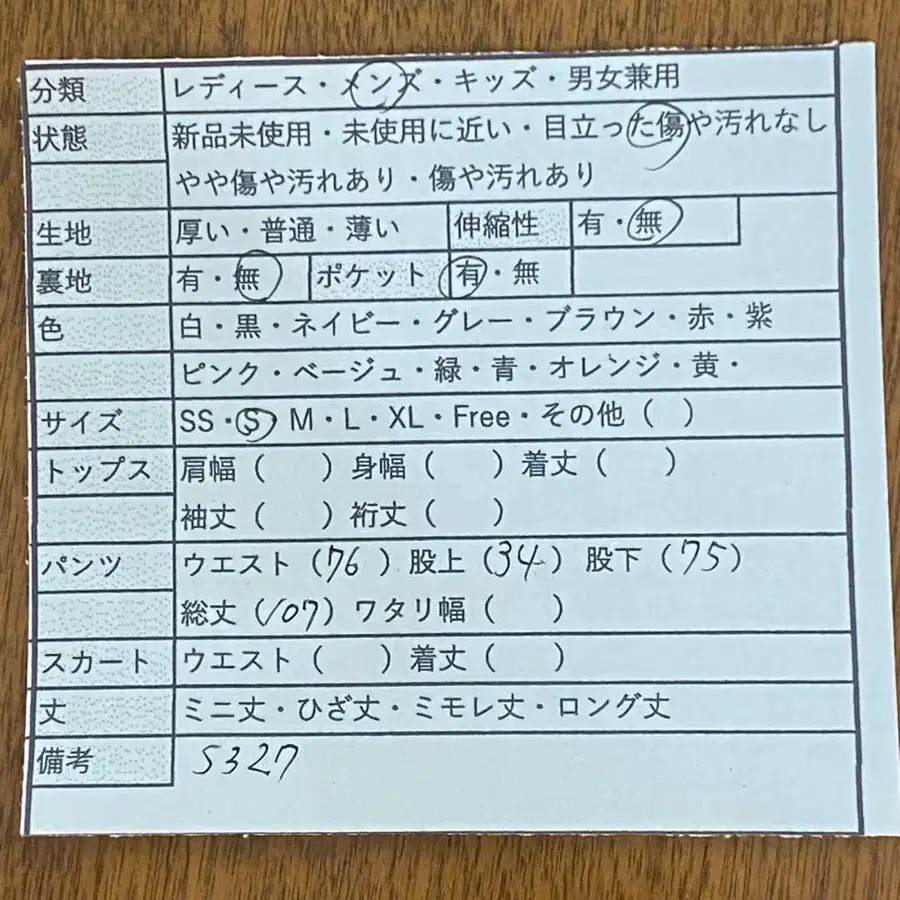 分類 レディース・メンズ・キッズ・男女兼用
状態 新品未使用・未使用に近い・目立った傷や汚れなし
やや傷や汚れあり・傷や汚れあり
生地 厚い・普通・薄い 伸縮性 有・無
裏地 有・無 ポケット 有・無
色 白・黒・ネイビー・グレー・ブラウン・赤・紫
ピンク・ベージュ・緑・青・オレンジ・黄・
サイズ SS・S M・L・XL・Free・その他（ ）
トップス 肩幅（ ）身幅（ ）着丈（ ）
袖丈（ ）裄丈（ ）
パンツ ウエスト（76）股上（34）股下（75）
総丈（107）ワタリ幅（ ）
スカート ウエスト（ ）着丈（ ）
丈 ミニ丈・ひざ丈・ミモレ丈・ロング丈
備考 S327